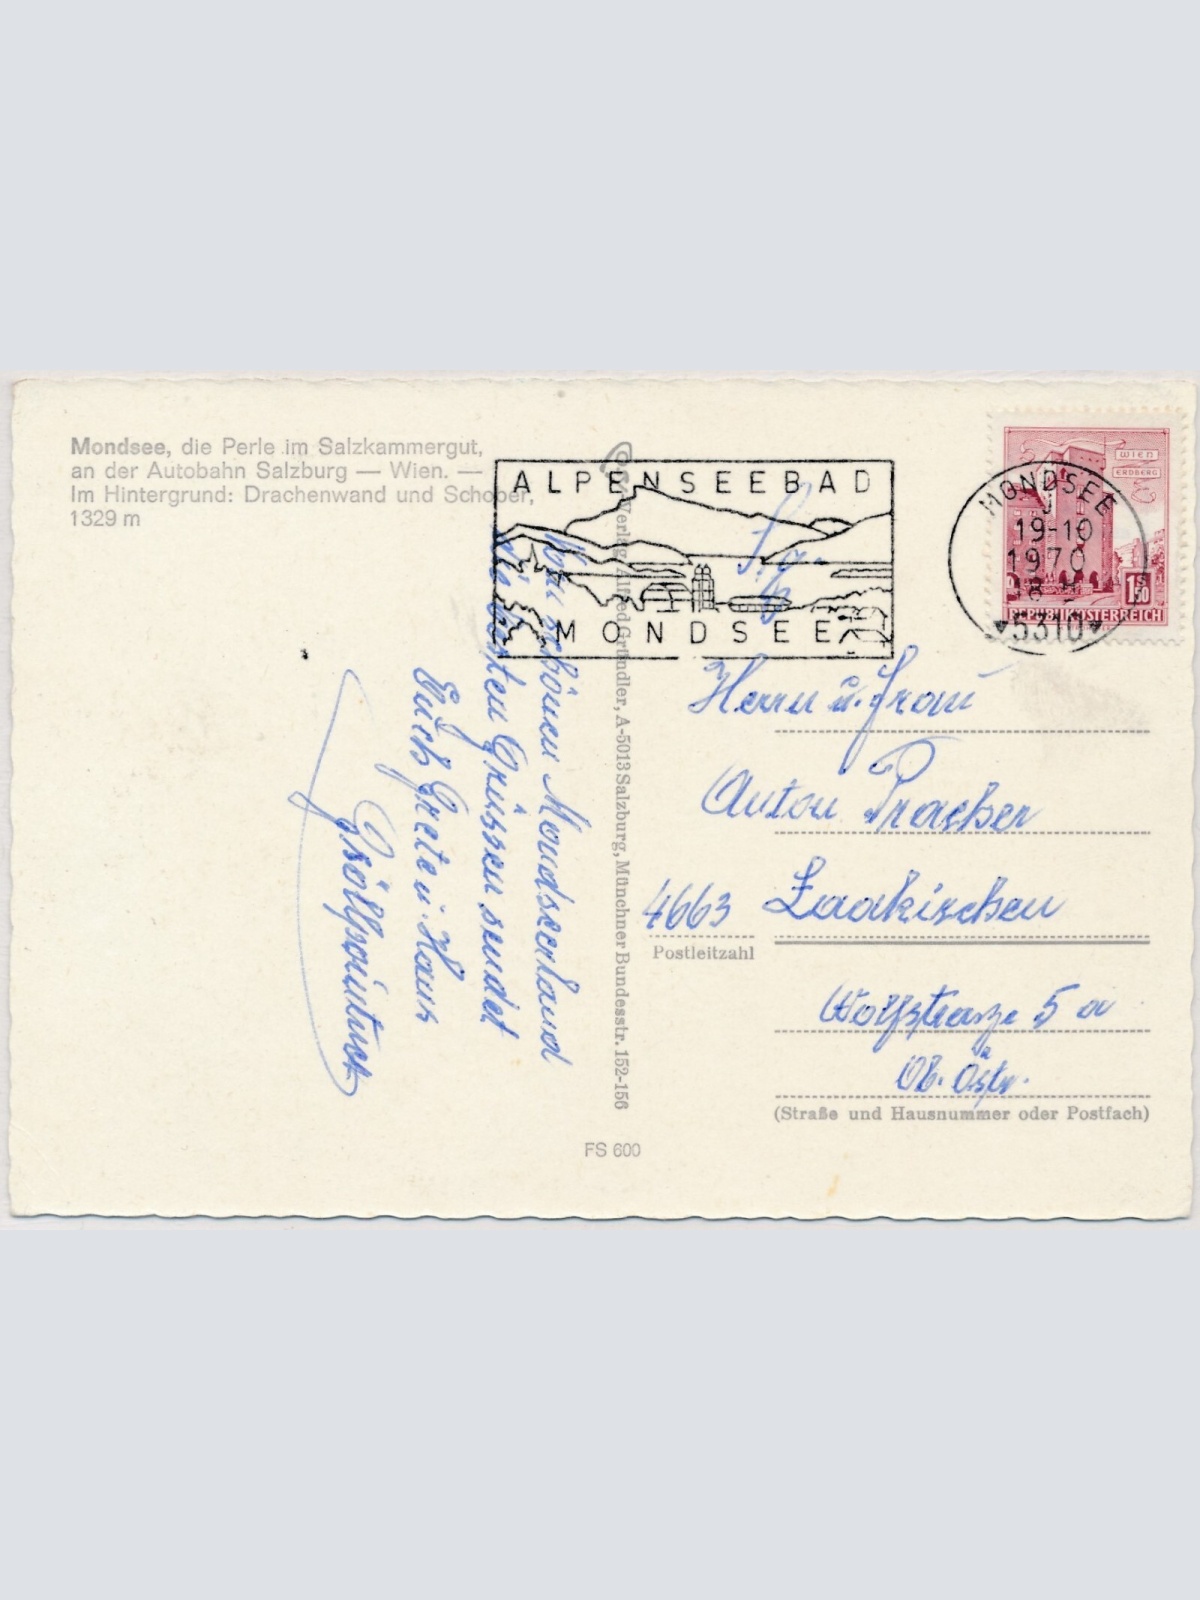 Mondsee, die Perle im Salzkammergut,
an der Autobahn Salzburg — Wien. —
Im Hintergrund: Drachenwand und Schober,
1329 m
ALPENSEEBAD
MONDSEE
MONDSEE
19-10
1970
18 H
5310
WIEN
ERDBERG
1S50
REPUBLIK ÖSTERREICH
schönen Mondseerland
die besten Grüssen sendet
Euch Grete u. Hans
© Verlag Alfred Gründler, A-5013 Salzburg, Münchner Bundesstr. 152-156
Herrn u. Frau
Anton Pracher
4663 Laakirchen
Postleitzahl
Wolfstrasze 5 a
Ob. Östr.
(Straße und Hausnummer oder Postfach)
FS 600